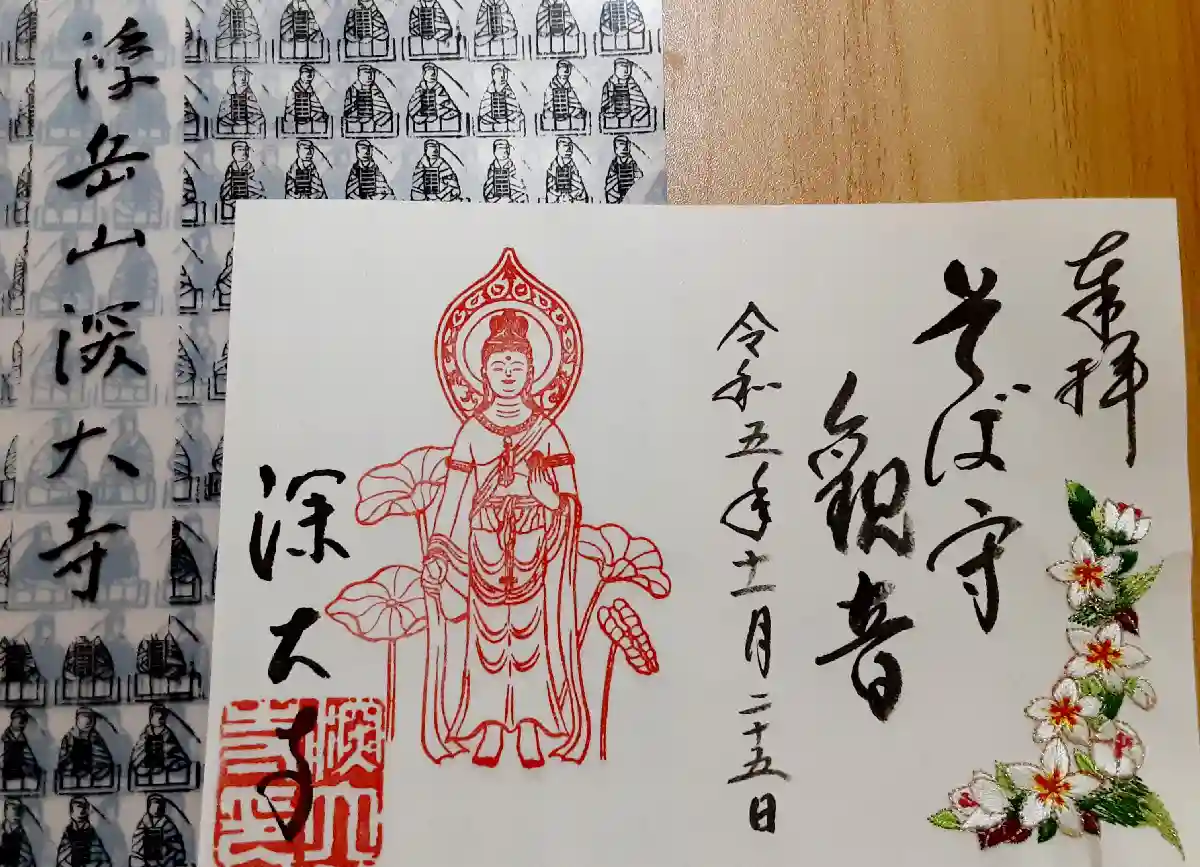 奉拝
そば守
観音
令和五年十一月二十五日
深大寺
浮岳山深大寺